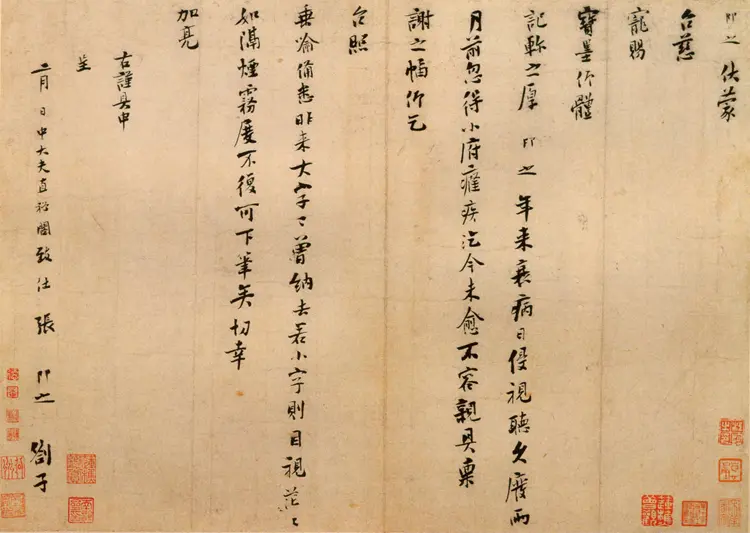 即之 伏蒙
台慈
寵賜
寶墨仰體
記軫之厚 即之 年来衰病日侵視聽久廢兩
月前忽得小府癃疾迄今未愈不容親具稟
謝之幅仰乞
台照
垂喻備悉昨来大字已曾納去若小字則目視茫々
如隔煙霧屢不復可下筆矣切幸
加亮
右謹具申
呈
二月 日中大夫直祕閣致仕張 即之 劄子